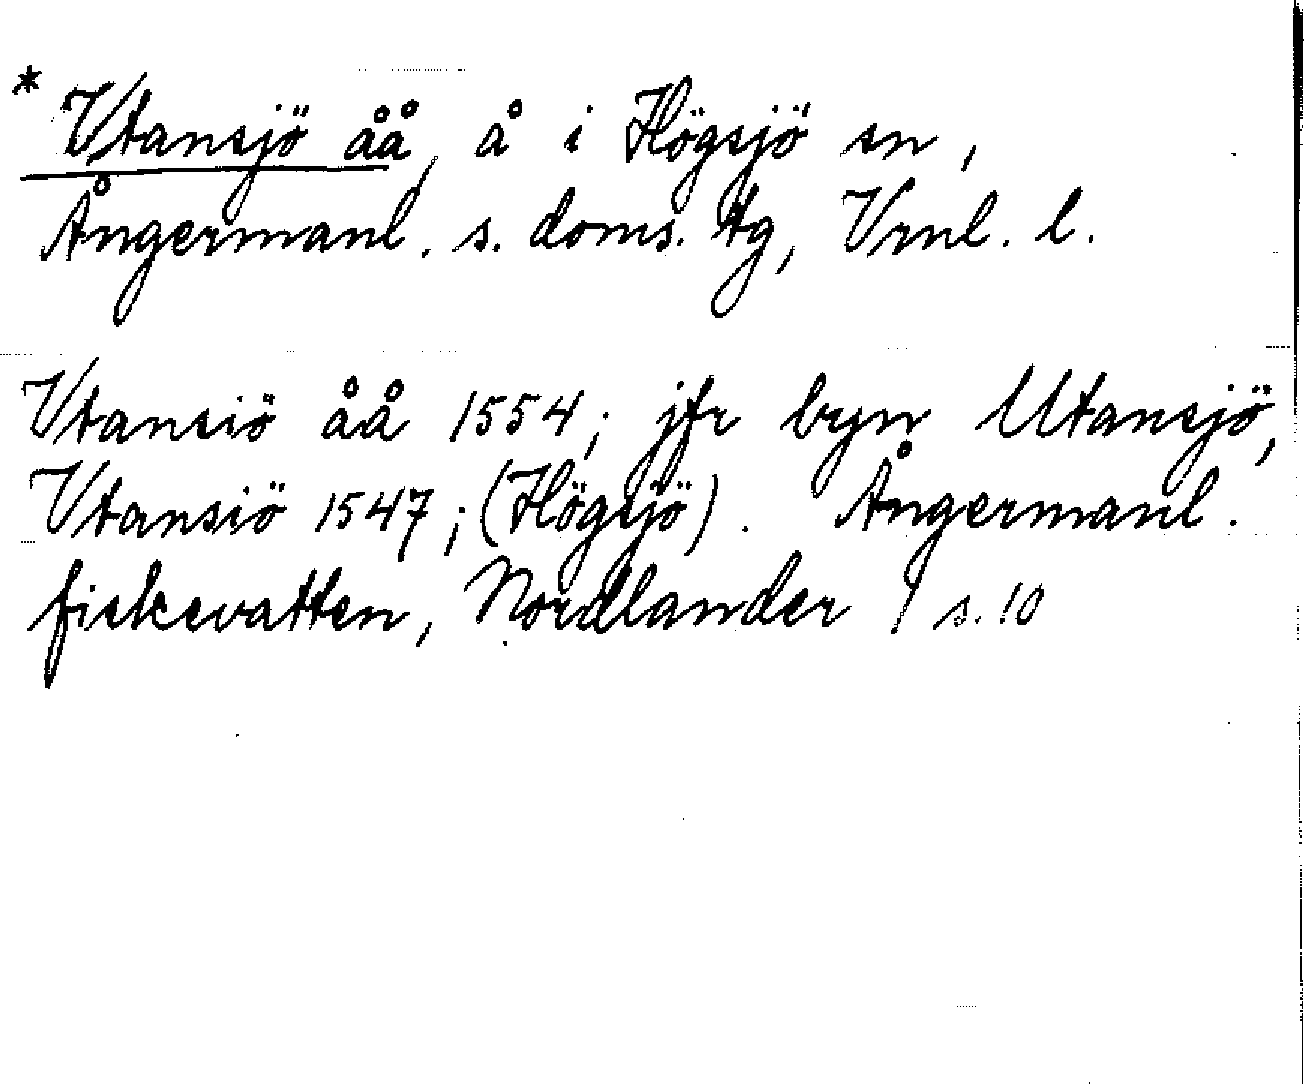 * Vtansjö åå, å i Högsjö sn,
Ångermanl. s. doms. tg, Vrnl. l.
Vtansiö åå 1554; jfr byn Utansjö,
Vtansiö 1547; (Högsjö). Ångermanl.
fiskevatten, Nordlander / s. 10